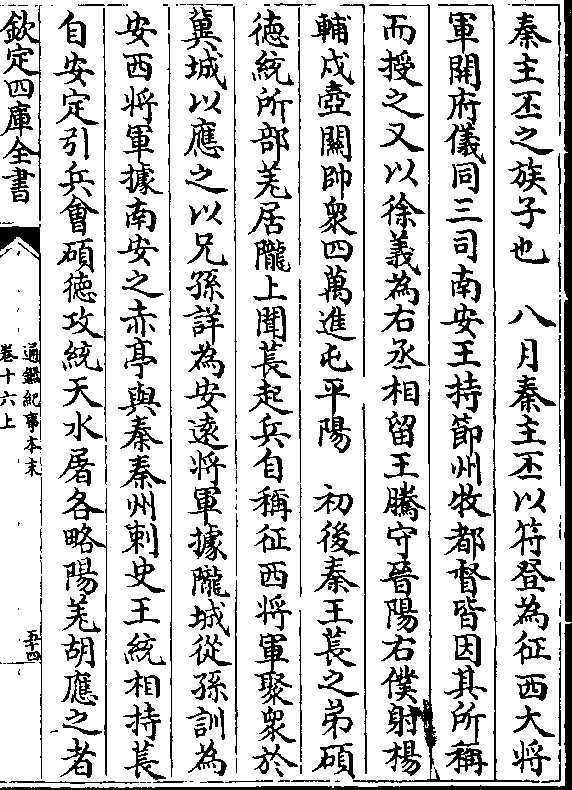 秦主丕之族子也　八月秦主丕以符登為征西大将
軍開府儀同三司南安王持節州牧都督皆因其所稱
而授之又以徐義為右丞相留王騰守晉陽右僕射楊
輔戍壺關帥衆四萬進屯平陽　初後秦王萇之弟碩
徳統所部羌居隴上聞萇起兵自稱征西将軍聚衆於
冀城以應之以兄孫詳為安遠将軍據隴城從孫訓為
安西将軍據南安之赤亭與秦秦州刺史王統相持萇
自安定引兵會碩徳攻統天水屠各略陽羌胡應之者
欽定四庫全書
通鑑紀事本末
卷十六上
五十四